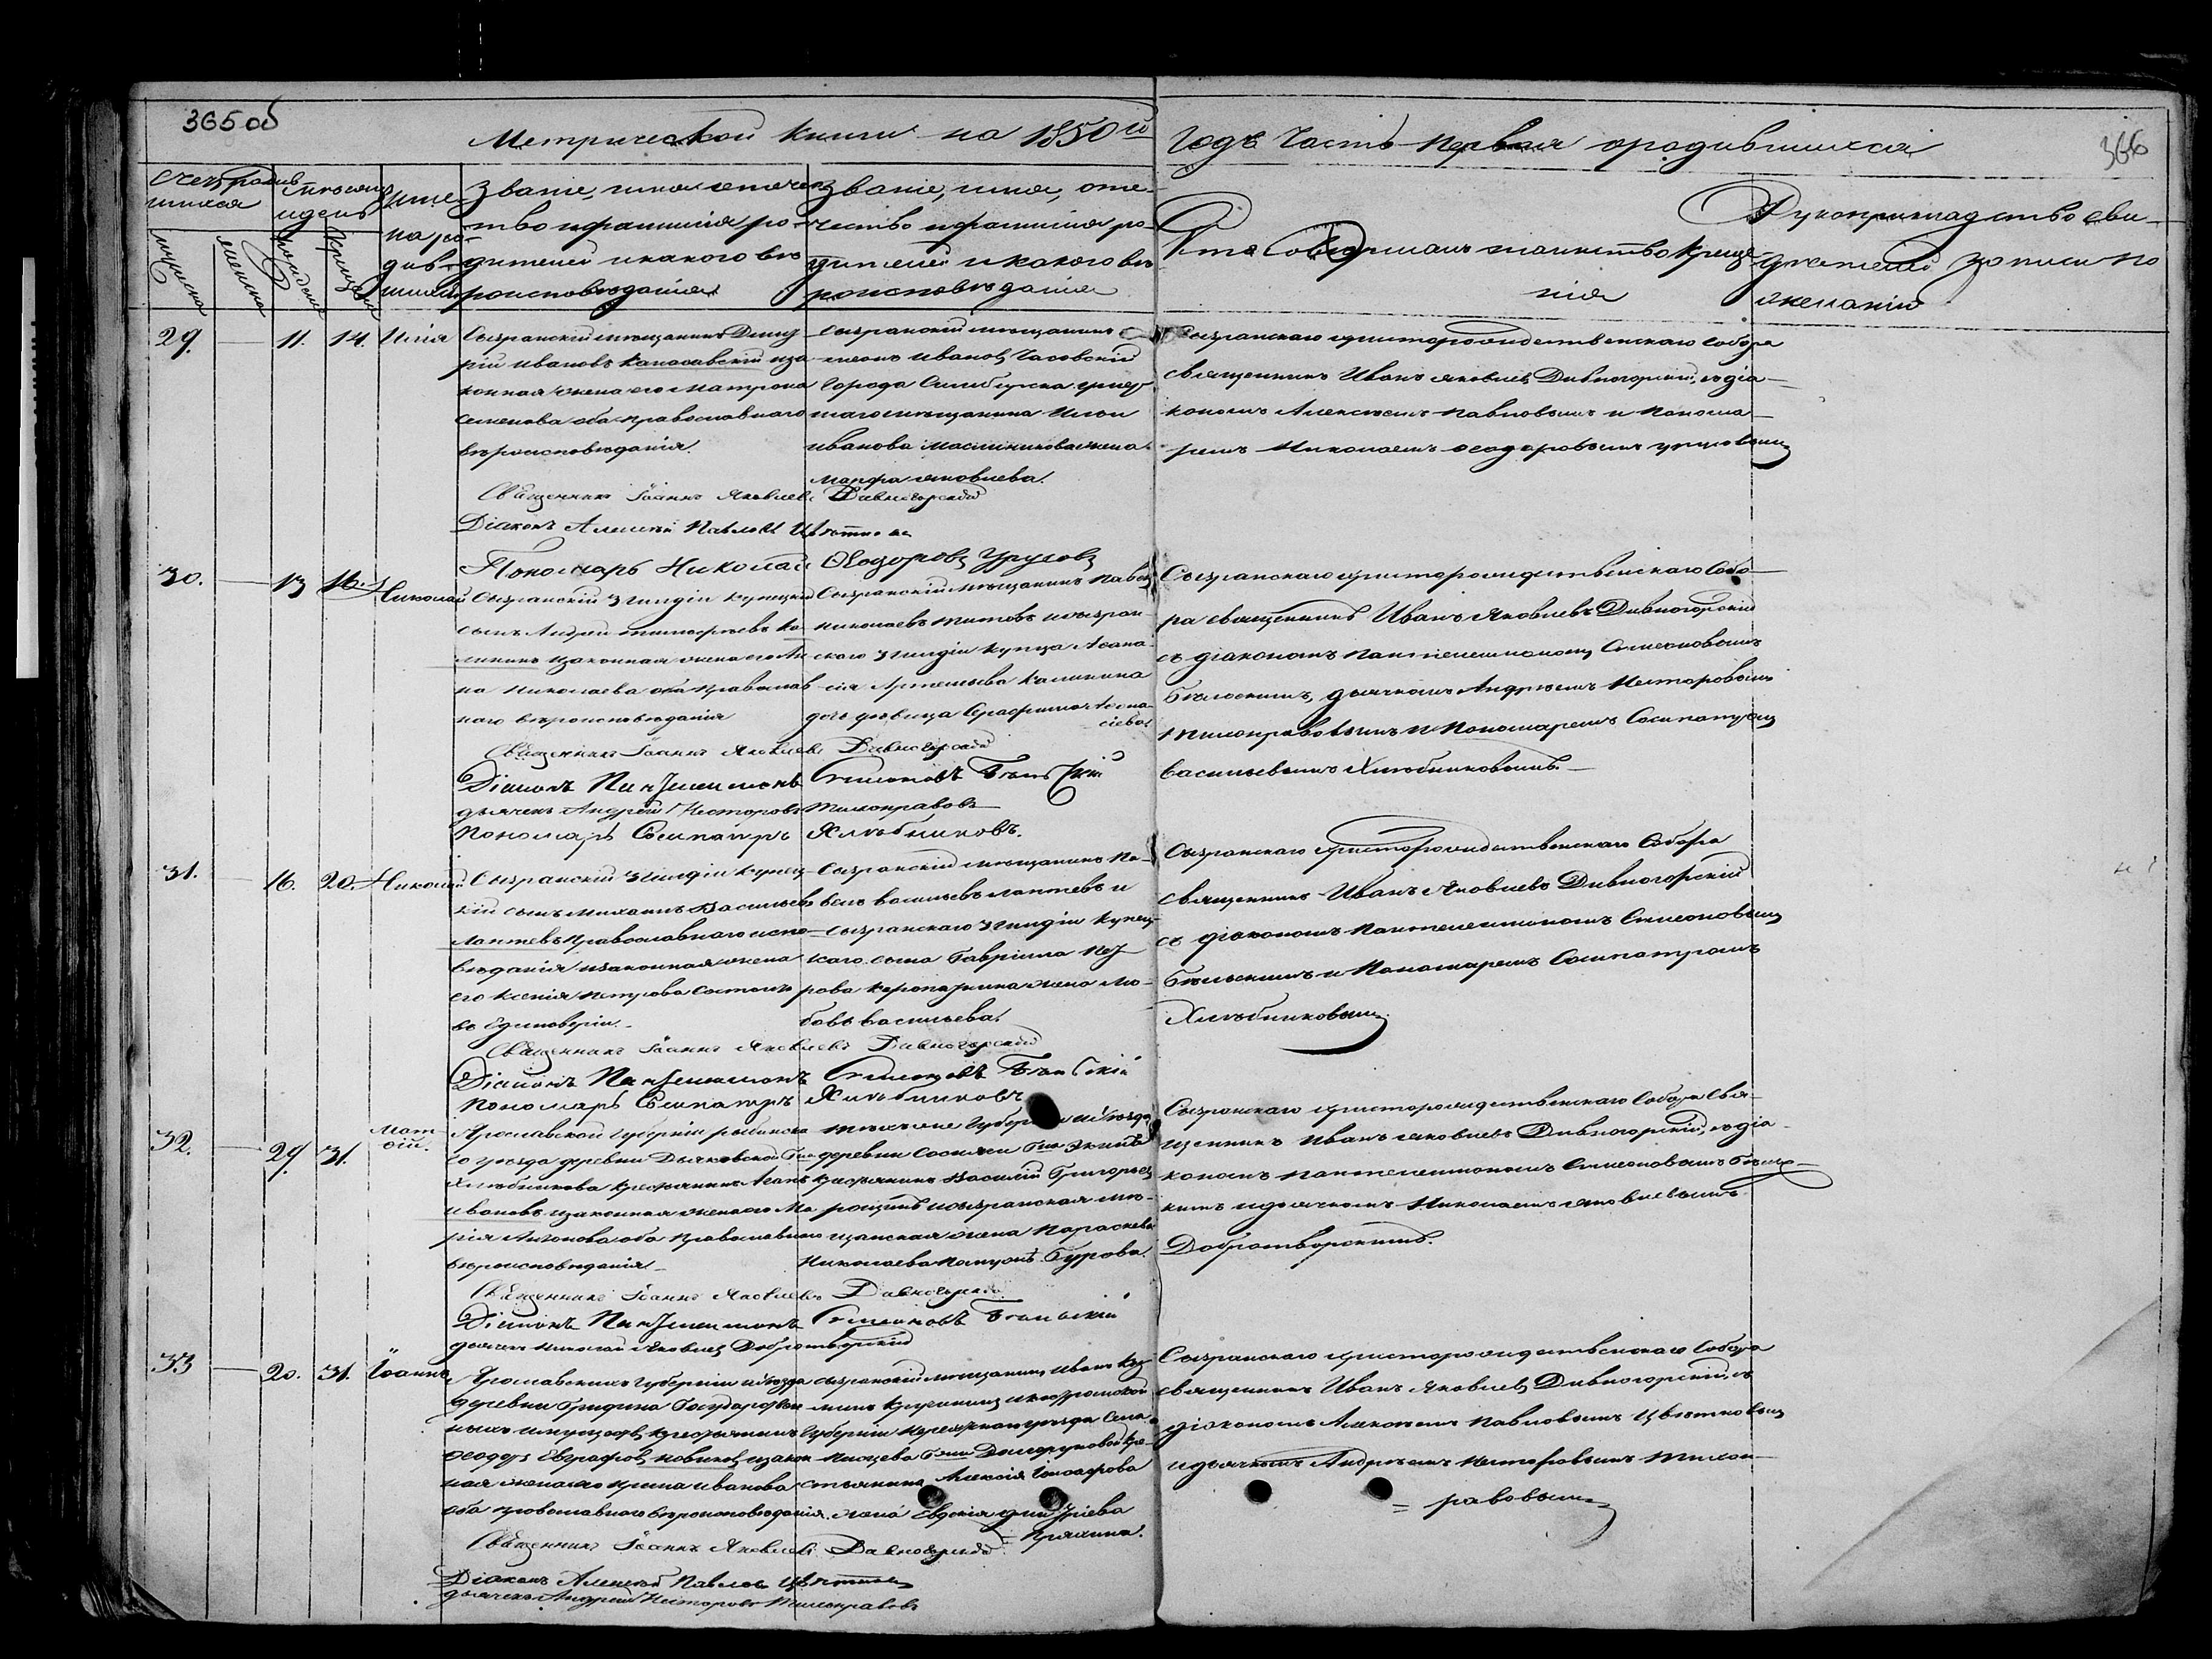 365об
Метрической книги на 1850й
годъ Часть первая о родившихся
366
Счетъ родив
шихся
мужеска
женска
Мѣсяцъ
и день
рожденія
крещенія
Име
на ро
див
шихся
Званіе, имя отечес
тво и фамилія ро
дителей и какого вѣ
роисповѣданія
Званіе, имя, оте
чество и фамилія ро
дителей и какого вѣ
роисповѣданія
Кто совершалъ таинство креще
нія
Рукоприкладство сви
дѣтелей записи по
желанію
29.
11.
14.
Илія
Сызранскій мѣщанинъ Димит
рій Ивановъ и за
конная жена его Матрона
Семенова оба православнаго
вѣроисповѣданія.
Сызранскій мѣщанинъ
Ивановъ Часовскій
города Симбирска
мѣщанина Ильи
Иванова Масленикова жена
Марфа Яковлева.
Сызранскаго христорождественскаго собора
священникъ Иванъ Яковлевъ Дивногорскій, съ діа
кономъ Алексѣемъ Павловымъ и Понома
ремъ Николаемъ Ѳеодоровымъ Урусовымъ
Священникъ Іоаннъ Яковлевъ Дивногорскій
Діаконъ Алексѣй Павловъ Цвѣтковъ
Пономарь Николай Ѳеодоровъ Урусовъ
30.
13
16.
Николай
Сызранскій 3 гильдіи купецкій
сынъ Андрей Тимофѣевъ Ка
лининъ и законная жена его Ан
на Николаева оба православ
наго вѣроисповѣданія
Сызранскій мѣщанинъ Павелъ
Николаевъ Титовъ и сызран
скаго 3 гильдіи купца Аѳана
сія Артемьева Калинина
дочь дѣвица Серафима Аѳана
сіева
Сызранскаго христорождественскаго Собо
ра священникъ Иванъ Яковлевъ Дивногорскій
съ діакономъ Пантелеимономъ Симеоновымъ
Бѣльскимъ, дьячкомъ Андреемъ Несторовымъ
Тихонравовымъ и Пономаремъ Сосипатромъ
Васильевымъ Хлѣбниковымъ.
Священникъ Іоаннъ Яковлевъ Дивногорскій
Діаконъ Пантелеимонъ Симеоновъ Бѣльскій
дьячекъ Андрей Несторовъ Тихонравовъ
Пономарь Сосипатръ Хлѣбниковъ.
31.
16.
20.
Николай
Сызранскій 3 гильдіи купец
кій сынъ Михаилъ Васильевъ
Лаптевъ православнаго испо
вѣданія и законная жена
его Ксенія Петрова состоитъ
въ Единовѣріи.
Сызранскій мѣщанинъ Па
велъ Васильевъ Лаптевъ и
сызранскаго 3 гильдіи купец
каго сына Гавріила Пет
рова жена Лю
бовь Васильева.
Сызранскаго христорождественскаго Собора
священникъ Иванъ Яковлевъ Дивногорскій
съ діакономъ Пантелеимономъ Симеоновымъ
Бѣльскимъ и Пономаремъ Сосипатромъ
Хлѣбниковымъ
Священникъ Іоаннъ Яковлевъ Дивногорскій
Діаконъ Пантелеимонъ Симеоновъ Бѣльскій
Пономарь Сосипатръ Хлѣбниковъ
32.
29.
31.
Мат
ѳій.
Ярославской губерніи рыбинска
го уѣзда деревни Дьяковской Гна
Хлѣбникова крестьянинъ
Ивановъ и законная жена его Ма
рія Антонова оба православнаго
вѣроисповѣданія
деревни Сосняги Гна
крестьянинъ Василій Григорьевъ
и сызранская мѣ
щанская жена Параскева
Николаева Бурова.
Сызранскаго христорождественскаго Собора Свя
щенникъ Иванъ Яковлевъ Дивногорскій, съ діа
кономъ Пантелеимономъ Симеоновымъ Бѣльс
кимъ и дьячкомъ Николаемъ Яковлевымъ
Добротворскимъ.
Священникъ Іоаннъ Яковлевъ Дивногорскій
Діаконъ Пантелеимонъ Симеоновъ Бѣльскій
дьячекъ Николай Яковлевъ Добротворскій
33
20.
31.
Іоаннъ
Ярославской губерніи и уѣзда
деревни Гридина Государствен
ныхъ имуществъ крестьянинъ
Ѳеодоръ Евграфовъ Новиковъ и закон
ная жена его Ирина Иванова
оба православнаго вѣроисповѣданія.
Сызранскій мѣщанинъ Иванъ Куз
минъ и костромской
губерніи уѣзда Села
Гжи Долгоруковой кре
стьянина Алексія
жена Евдокія Димитріева
Сызранскаго христорождественскаго Собора
священникъ Иванъ Яковлевъ Дивногорскій, съ
діакономъ Алексѣемъ Павловымъ Цвѣтковымъ
и дьячкомъ Андреемъ Несторовымъ Тихон
равовымъ
Священникъ Іоаннъ Яковлевъ Дивногорскій
Діаконъ Алексѣй Павловъ Цвѣтковъ
дьячекъ Андрей Несторовъ Тихонравовъ